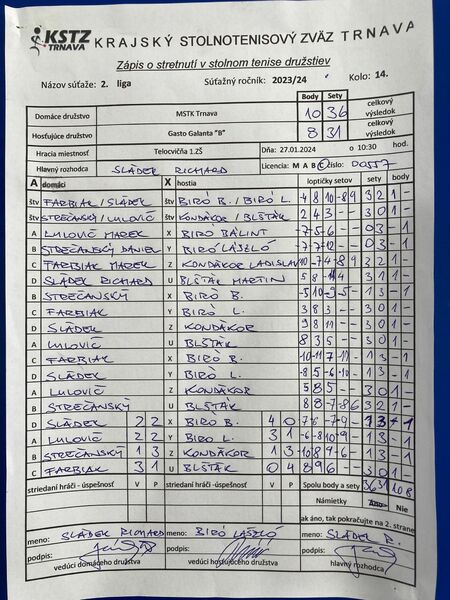 KSTZ TRNAVA KRAJSKÝ STOLNOTENISOVÝ ZVÄZ TRNAVA
Zápis o stretnutí v stolnom tenise družstiev
Názov súťaže: 2. liga Súťažný ročník: 2023/24 Kolo: 14.
Body Sety
Domáce družstvo MSTK Trnava 10 36 celkový výsledok
Hosťujúce družstvo Gasto Galanta "B" 8 31 celkový výsledok
Hracia miestnosť Telocvičňa 1.ZŠ Dňa: 27.01.2024 o 10:30 hod.
Hlavný rozhodca SLÁDEK RICHARD Licencia: M A B C číslo: 00557
A domáci X hostia loptičky setov sety body
štv FARBIAK / SLÁDEK štv BIRÓ B. / BIRÓ L. -4 8 10 -8 9 3 2 1 -
štv STREČANSKÝ / LULOVIČ štv KONDÁKOR / BLŠŤÁK 2 4 3 - - 3 0 1 -
A LULOVIČ MAREK X BIRÓ BÁLINT -7 -5 -6 - - 0 3 - 1
B STREČANSKÝ DANIEL Y BIRÓ LÁSZLÓ -7 -7 -12 - - 0 3 - 1
C FARBIAK MAREK Z KONDÁKOR LADISLAV 10 -7 4 -8 9 3 2 1 -
D SLÁDEK RICHARD U BLŠŤÁK MARTIN 3 1 1 -
B STREČANSKÝ X BIRÓ B. -5 10 -9 -5 - 1 3 - 1
C FARBIAK Y BIRÓ L. 3 8 3 - - 3 0 1 -
D SLÁDEK Z KONDÁKOR 9 8 11 - - 3 0 1 -
A LULOVIČ U BLŠŤÁK 8 3 5 - - 3 0 1 -
C FARBIAK X BIRÓ B. -10 -11 7 -10 - 1 3 - 1
D SLÁDEK Y BIRÓ L. -8 5 -6 -10 - 1 3 - 1
A LULOVIČ Z KONDÁKOR 5 8 5 - - 3 0 1 -
B STREČANSKÝ U BLŠŤÁK 8 8 -7 -8 6 3 2 1 -
D SLÁDEK 2 2 X BIRÓ B. 4 0 1 3 - 1
A LULOVIČ 2 2 Y BIRÓ L. 3 1 -6 -8 10 -9 - 1 3 - 1
B STREČANSKÝ 1 3 Z KONDÁKOR 1 3 -10 8 -9 -6 - 1 3 - 1
C FARBIAK 3 1 U BLŠŤÁK 0 4 8 9 6 - - 3 0 1 -
striedaní hráči - úspešnosť V P striedaní hráči - úspešnosť V P Spolu body a sety 36 31 10 8
Námietky Áno Nie
ak áno, tak pokračujte na 2. strane
meno: SLÁDEK RICHARD meno: BIRÓ LÁSZLÓ meno: SLÁDEK R.
podpis: podpis: podpis:
vedúci domáceho družstva vedúci hosťujúceho družstva hlavný rozhodca